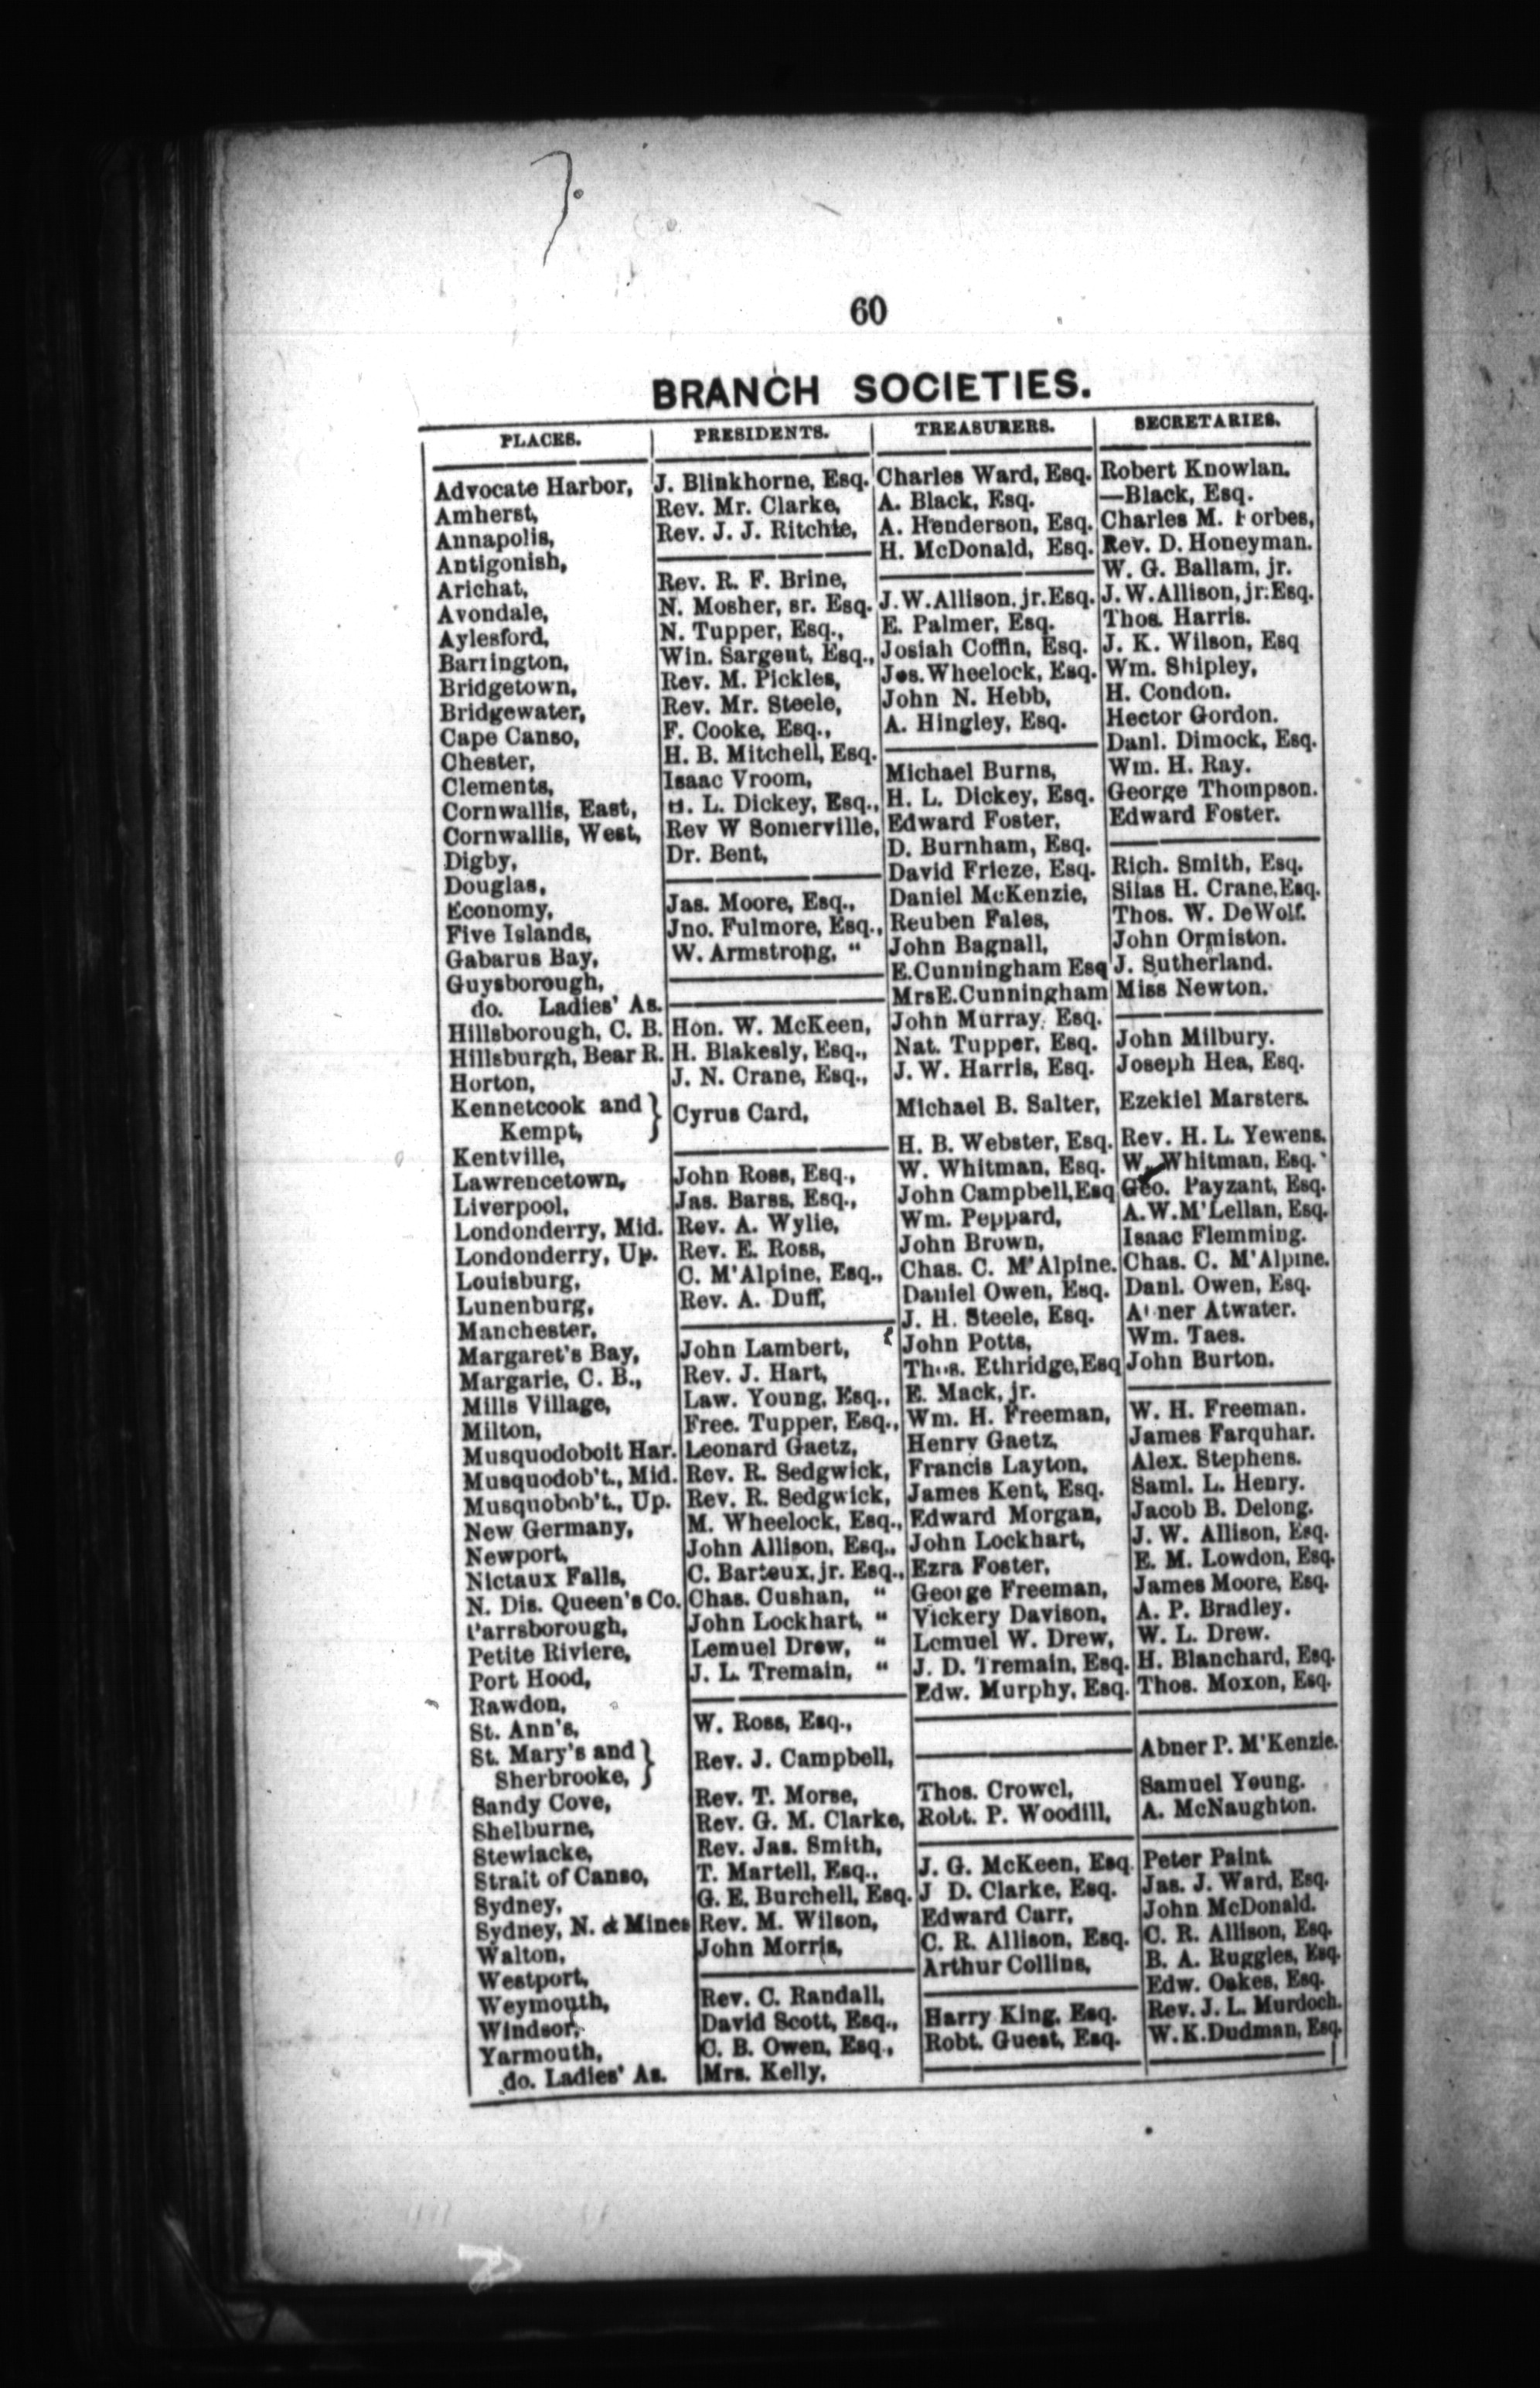 60
BRANCH SOCIETIES.
PLACES. PRESIDENTS. TREASURERS. SECRETARIES.
Advocate Harbor, J. Blinkhorne, Esq. Charles Ward, Esq. Robert Knowlan.
Amherst, Rev. Mr. Clarke, A. Black, Esq. —Black, Esq.
Annapolis, Rev. J. J. Ritchie, A. Henderson, Esq. Charles M. Forbes,
Antigonish, —— H. McDonald, Esq. Rev. D. Honeyman.
Arichat, Rev. R. F. Brine, —— W. G. Ballam, jr.
Avondale, N. Mosher, sr. Esq. J.W.Allison. jr.Esq. J.W.Allison, jr.Esq.
Aylesford, N. Tupper, Esq., E. Palmer, Esq. Thos. Harris.
Barrington, Win. Sargent, Esq., Josiah Coffin, Esq. J. K. Wilson, Esq
Bridgetown, Rev. M. Pickles, Jos. Wheelock, Esq. Wm. Shipley,
Bridgewater, Rev. Mr. Steele, John N. Hebb, H. Condon.
Cape Canso, F. Cooke, Esq., A. Hingley, Esq. Hector Gordon.
Chester, H. B. Mitchell, Esq. —— Danl. Dimock, Esq.
Clements, Isaac Vroom, Michael Burns, Wm. H. Ray.
Cornwallis, East, H. L. Dickey, Esq., H. L. Dickey, Esq. George Thompson.
Cornwallis, West, Rev W Somerville, Edward Foster, Edward Foster.
Digby, Dr. Bent, D. Burnham, Esq. ——
Douglas, —— David Frieze, Esq. Rich. Smith, Esq.
Economy, Jas. Moore, Esq., Daniel McKenzie, Silas H. Crane, Esq.
Five Islands, Jno. Fulmore, Esq., Reuben Fales, Thos. W. DeWolf.
Gabarus Bay, W. Armstrong, “ John Bagnall, John Ormiston.
Guysborough, —— E.Cunningham Esq J. Sutherland.
do. Ladies' As. —— MrsE.Cunningham Miss Newton.
Hillsborough, C. B. Hon. W. McKeen, John Murray, Esq. ——
Hillsburgh, Bear R. H. Blakesly, Esq., Nat. Tupper, Esq. John Milbury.
Horton, J. N. Crane, Esq., J. W. Harris, Esq. Joseph Hea, Esq.
Kennetcook and } Cyrus Card, Michael B. Salter, Ezekiel Marsters.
Kempt,
Kentville, —— H. B. Webster, Esq. Rev. H. L. Yewens.
Lawrencetown, John Ross, Esq., W. Whitman, Esq. W. Whitman, Esq.
Liverpool, Jas. Barss, Esq., John Campbell,Esq Geo. Payzant, Esq.
Londonderry, Mid. Rev. A. Wylie, Wm. Peppard, A.W.M'Lellan, Esq.
Londonderry, Up. Rev. E. Ross, John Brown, Isaac Flemming.
Louisburg, C. M'Alpine, Esq., Chas. C. M'Alpine. Chas. C. M'Alpine.
Lunenburg, Rev. A. Duff, Daniel Owen, Esq. Danl. Owen, Esq.
Manchester, —— J. H. Steele, Esq. Abner Atwater.
Margaret's Bay, John Lambert, John Potts, Wm. Taes.
Margarie, C. B., Rev. J. Hart, Thos. Ethridge,Esq John Burton.
Mills Village, Law. Young, Esq., E. Mack, jr. ——
Milton, Free. Tupper, Esq., Wm. H. Freeman, W. H. Freeman.
Musquodoboit Har. Leonard Gaetz, Henry Gaetz, James Farquhar.
Musquodob't., Mid. Rev. R. Sedgwick, Francis Layton, Alex. Stephens.
Musquobob't., Up. Rev. R. Sedgwick, James Kent, Esq. Saml. L. Henry.
New Germany, M. Wheelock, Esq., Edward Morgan, Jacob B. Delong.
Newport, John Allison, Esq., John Lockhart, J. W. Allison, Esq.
Nictaux Falls, C. Barteux, jr. Esq., Ezra Foster, E. M. Lowdon, Esq.
N. Dis. Queen's Co. Chas. Cushan, “ George Freeman, James Moore, Esq.
Parrsborough, John Lockhart, “ Vickery Davison, A. P. Bradley.
Petite Riviere, Lemuel Drew, “ Lemuel W. Drew, W. L. Drew.
Port Hood, J. L. Tremain, “ J. D. Tremain, Esq. H. Blanchard, Esq.
Rawdon, —— Edw. Murphy, Esq. Thos. Moxon, Esq.
St. Ann's, W. Ross, Esq., —— ——
St. Mary's and } Rev. J. Campbell, —— Abner P. M'Kenzie.
Sherbrooke,
Sandy Cove, Rev. T. Morse, Thos. Crowel, Samuel Young.
Shelburne, Rev. G. M. Clarke, Robt. P. Woodill, A. McNaughton.
Stewiacke, Rev. Jas. Smith, —— ——
Strait of Canso, T. Martell, Esq., J. G. McKeen, Esq. Peter Paint.
Sydney, G. E. Burchell, Esq. J D. Clarke, Esq. Jas. J. Ward, Esq.
Sydney, N. & Mines Rev. M. Wilson, Edward Carr, John McDonald.
Walton, John Morris, C. R. Allison, Esq. C. R. Allison, Esq.
Westport, —— Arthur Collins, B. A. Ruggles, Esq.
Weymouth, Rev. C. Randall, —— Edw. Oakes, Esq.
Windsor, David Scott, Esq., Harry King, Esq. Rev. J. L. Murdoch.
Yarmouth, C. B. Owen, Esq., Robt. Guest, Esq. W.K.Dudman, Esq.
do. Ladies' As. Mrs. Kelly, —— ——